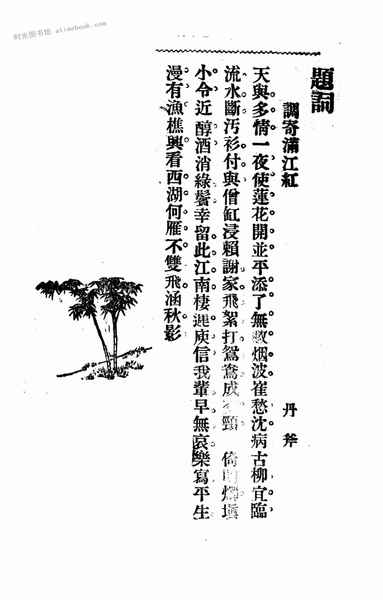 时光图书馆 atimebook.com
題詞
調寄滿江紅
丹斧
天與多情一夜使蓮花開並平添了無烟波崔愁沈病古柳宜臨
流水斷汚衫付與僧缸浸賴謝家飛絮打鴛鴦成頸 倚燭塡
小令近醇酒消綠鬢幸留此江南棲遲庾信我輩早無哀樂寫平生
漫有漁樵興看西湖何雁不雙飛涵秋影